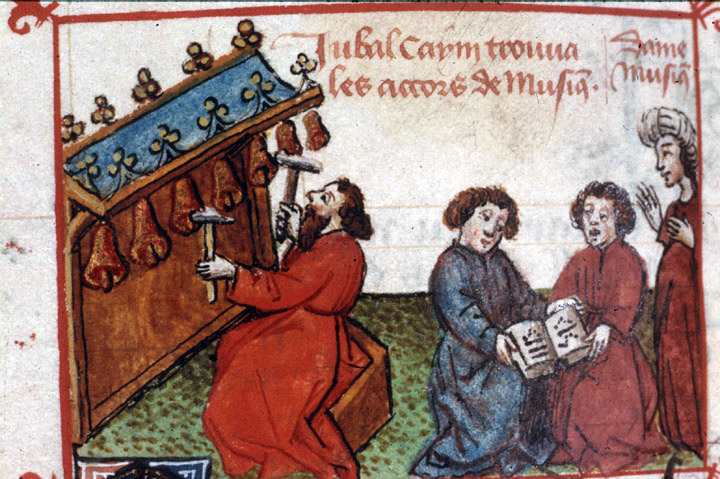 Jubal Caym trouva
les accors de Musiq.
Dame
Musiq